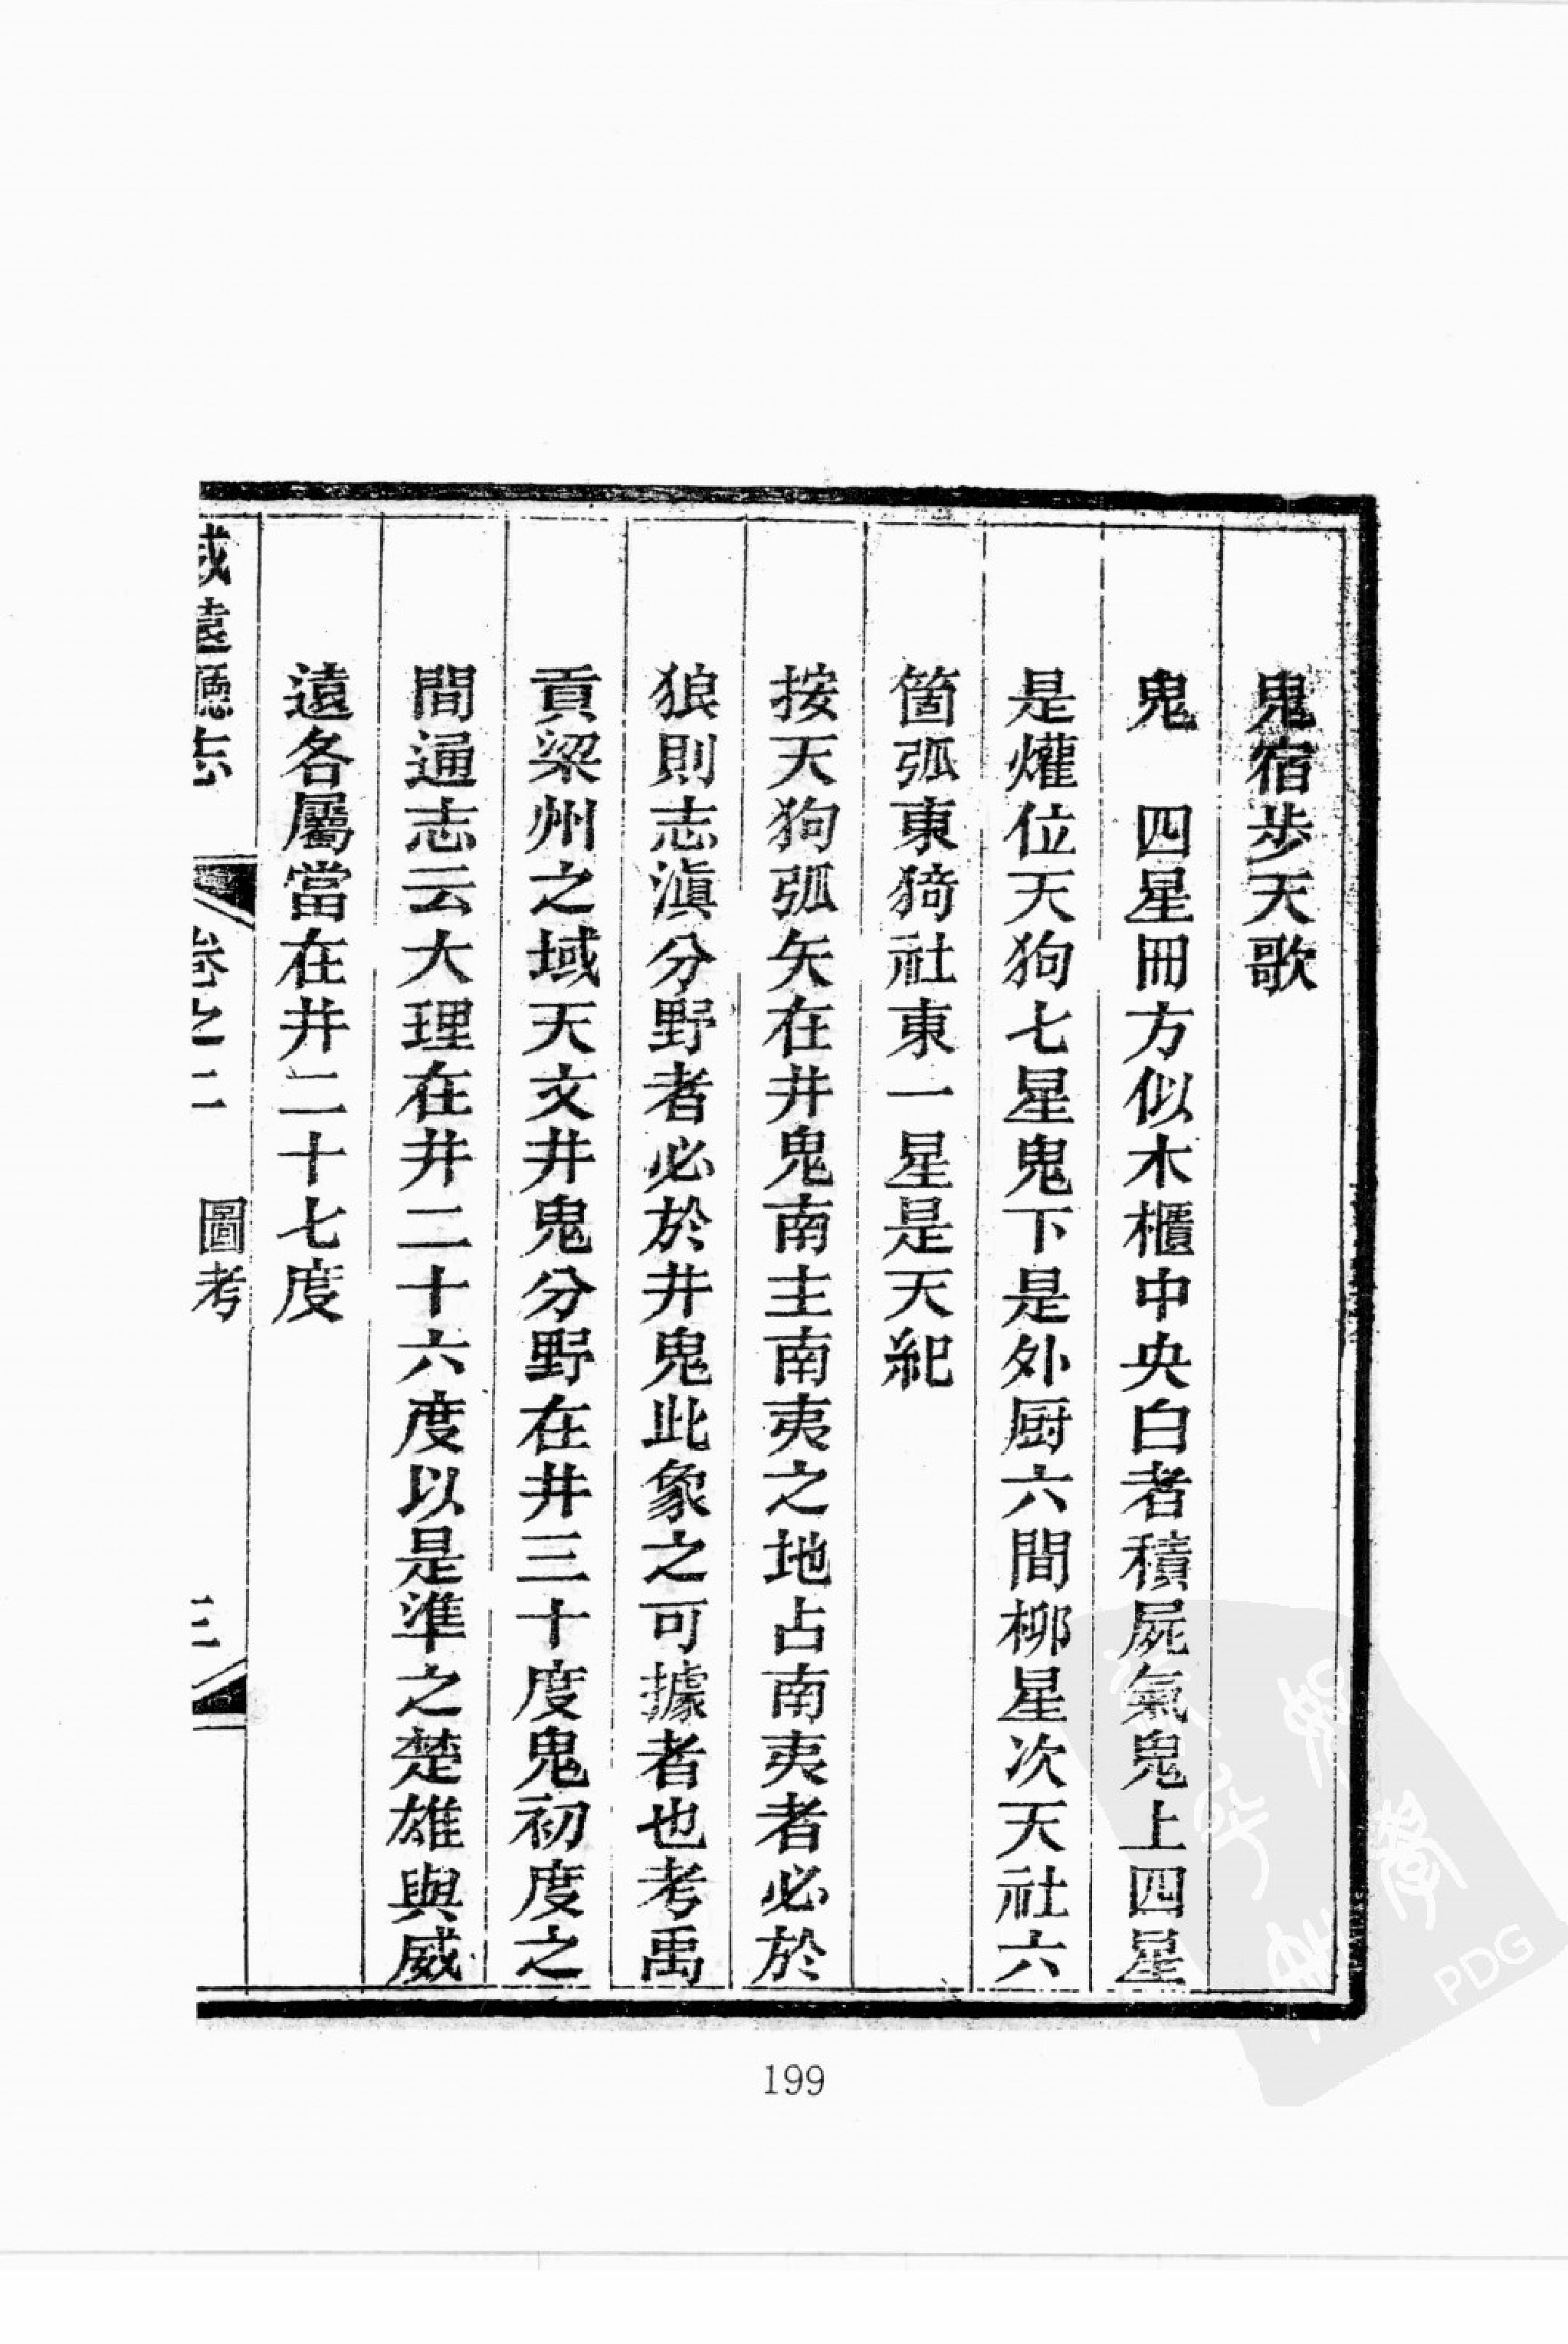 鬼宿步天歌
鬼　四星冊方似木櫃中央白者積屍氣鬼上四星
是爟位天狗七星鬼下是外厨六間柳星次天社六
箇弧東猗社東一星是天紀
按天狗弧矢在井鬼南主南夷之地占南夷者必於
狼則志滇分野者必於井鬼此象之可據者也考禹
貢梁州之域天文井鬼分野在井三十度鬼初度之
間通志云大理在井二十六度以是準之楚雄與威
遠各屬當在井二十七度
威遠廳志　卷之二　圖考　三
199
PDG